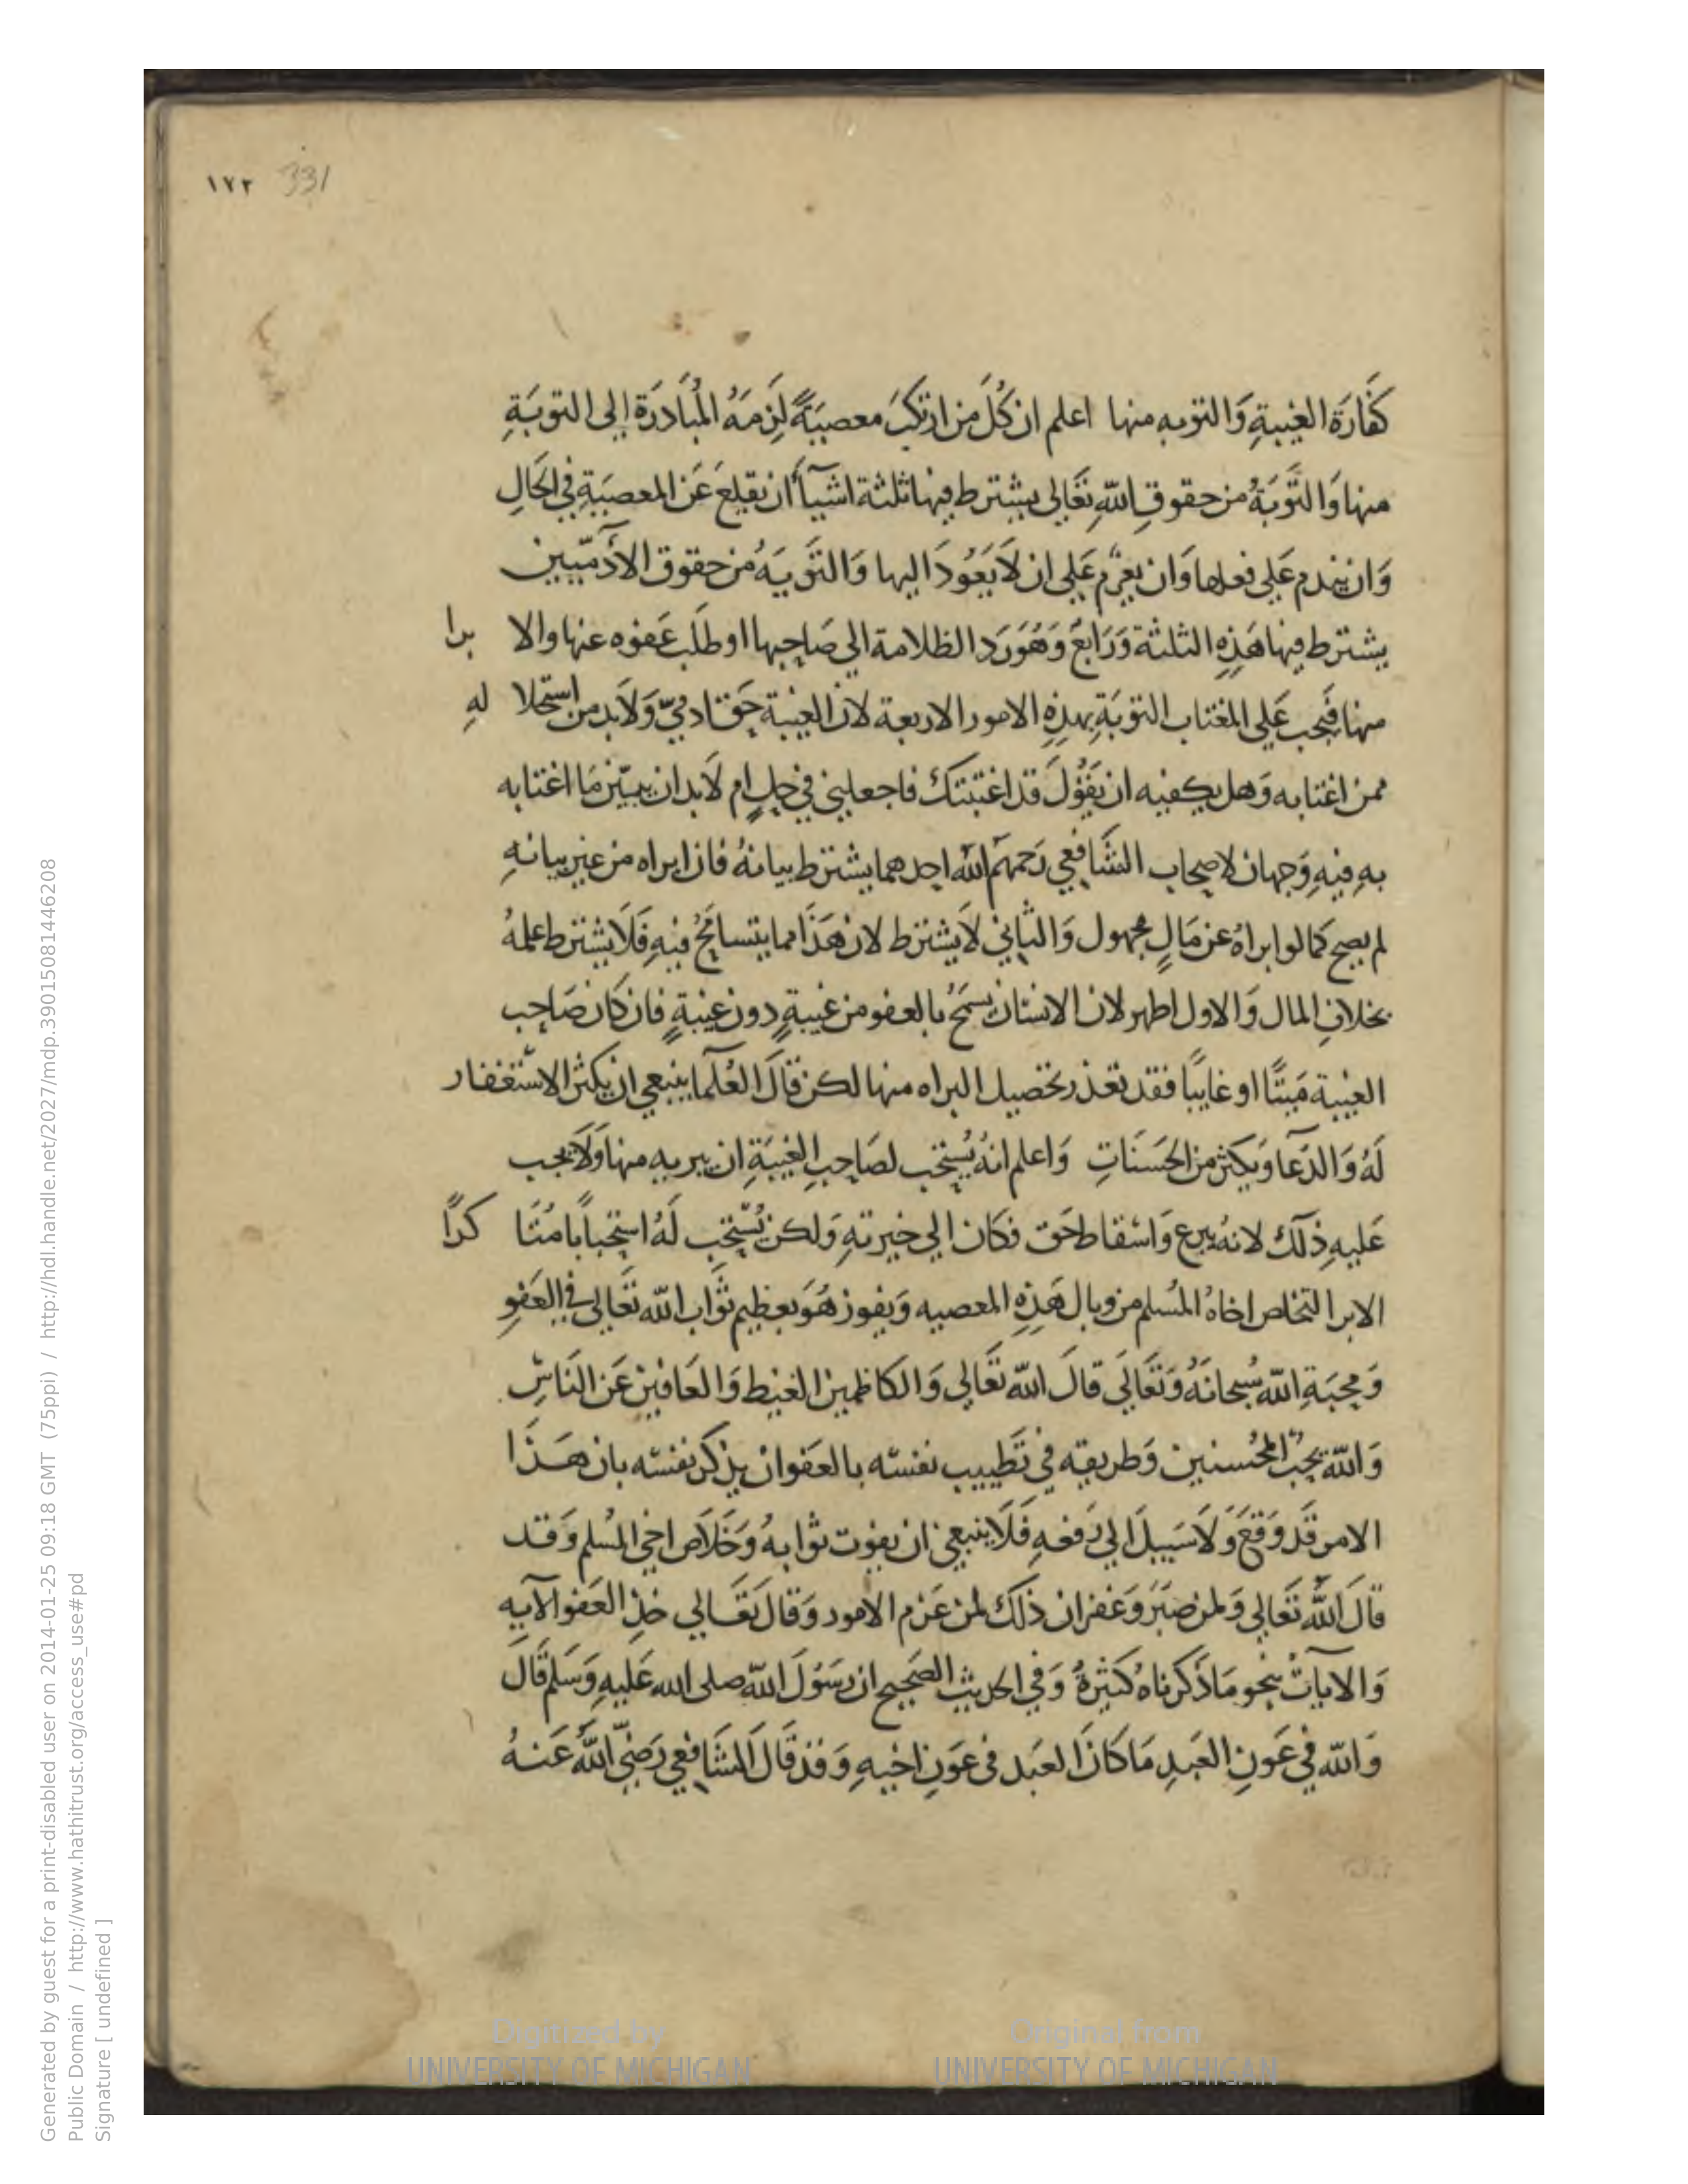 ١٧٢ 331
كفّارَة الغيبةِ وَالتوبه منها اعلم ان كُلَ من ارتكبَ معصيَةً لَزِمَهُ المُبَادرَة الى التوبَةِ
منها وَالتَّوبَةُ من حقوقِ اللّهِ تعَالى يشترط فيها ثلثة اشيآأ ان يقلعَ عَن المعصيَةِ في الحَالِ
وَان يندم عَلي فعلها وَان يعزم عَلي ان لاَ يَعُودَ اليها وَالتَوبَهُ من حقوق الآدَميّيين
يشترط فيها هَذِهِ الثلثة وَرَابعَ وَهُوَ رَد الظلامة الي صَاحِبها او طلَب عَفوه عنها والابرا
منها فيَجب عَلي المغتاب التوبَةِ بهذِهِ الامور الاربعة لان الغيبة حَق ادميّ وَلاَبد من استحلا لهِ
ممن اغتابه وَهل يكفيه ان يَقُولَ قد اغتبتكَ فاجعلني في حِلٍ ام لاَبد ان يبيّن مَا اغتابه
بهِ فيهِ وَجهان لاصحاب الشَافعي رَحمَهم الله احدهما يشترط بيانهُ فان ابراه من غير بيانهِ
لم يصح كما لو ابراهُ عن مَالٍ مجهول وَالثاني لاَ يشترط لان هَذَا مما يتسامَحُ فيهِ فَلاَ يشترط علمهُ
بخلافِ المال وَالاول اظهر لان الانسَان يسمَحُ بالعفو من غيبةٍ دون غيبةٍ فان كان صَاحِب
الغيبة مَيتًا او غايبًا فقد تعذر تحصيل البراه منها لكن قالَ العُلَمآ ينبغي ان يكثر الاستغفار
لَهُ وَالدّعآ وَيكثر من الحَسَنَاتِ وَاعلم انهُ يُستحَب لصَاحِبِ الغيبَةِ ان يبريه منها وَلاَ يجب
عَليهِ ذلكَ لانهُ تبرع وَاسْقاط حَق فكَان الي خيرتهِ وَلكن يُستحَب لَهُ استحَبابًا مُتَا كدًا
الابرا لتخلص اخاهُ المُسلم من وبال هَذِهِ المعصيه وَيفوز هُوَ بعظيم ثَواب اللّه تعَالي في العَفوِ
وَمحبَةِ اللّه سُبحَانَهُ وَتَعَالَي قالَ اللّه تعَالي وَالكاظمين الغيط وَالعَافين عَن النَاسِ
وَاللّه يحِبُ المُحسنين وَطريقه في تَطييب نفسَه بالعَفو ان يذكر نفسَه بان هَذَا
الامر قَد وَقعَ وَلاَ سَبيلَ الي رَفعهِ فَلاَ ينبغي ان يفوت ثوابهُ وَخَلاَص اخي المُسلم وَقد
قالَ اللّه تَعَالي وَلمن صَبَرَ وَغفر ان ذلكَ لمن عَزم الامور وَقالَ تَعَالي خذِ العَفو الآيه
وَالايَاتُ بنحو مَا ذَكرناهُ كثيرَةُ وَفي الحديث الصَحيح ان رَسُولَ اللّه صلى الله عَليهِ وَسَلم قَالَ
وَاللّه في عَونِ العَبدِ مَا كانَ العَبد في عَونِ اخيهِ وَقد قَالَ الشَافعي رَضيَ اللّه عَنهُ
Digitized by
UNIVERSITY OF MICHIGAN
Original from
UNIVERSITY OF MICHIGAN
Generated by guest for a print-disabled user on 2014-01-25 09:18 GMT (75ppi) / http://hdl.handle.net/2027/mdp.39015081446208
Public Domain / http://www.hathitrust.org/access_use#pd
Signature [ undefined ]